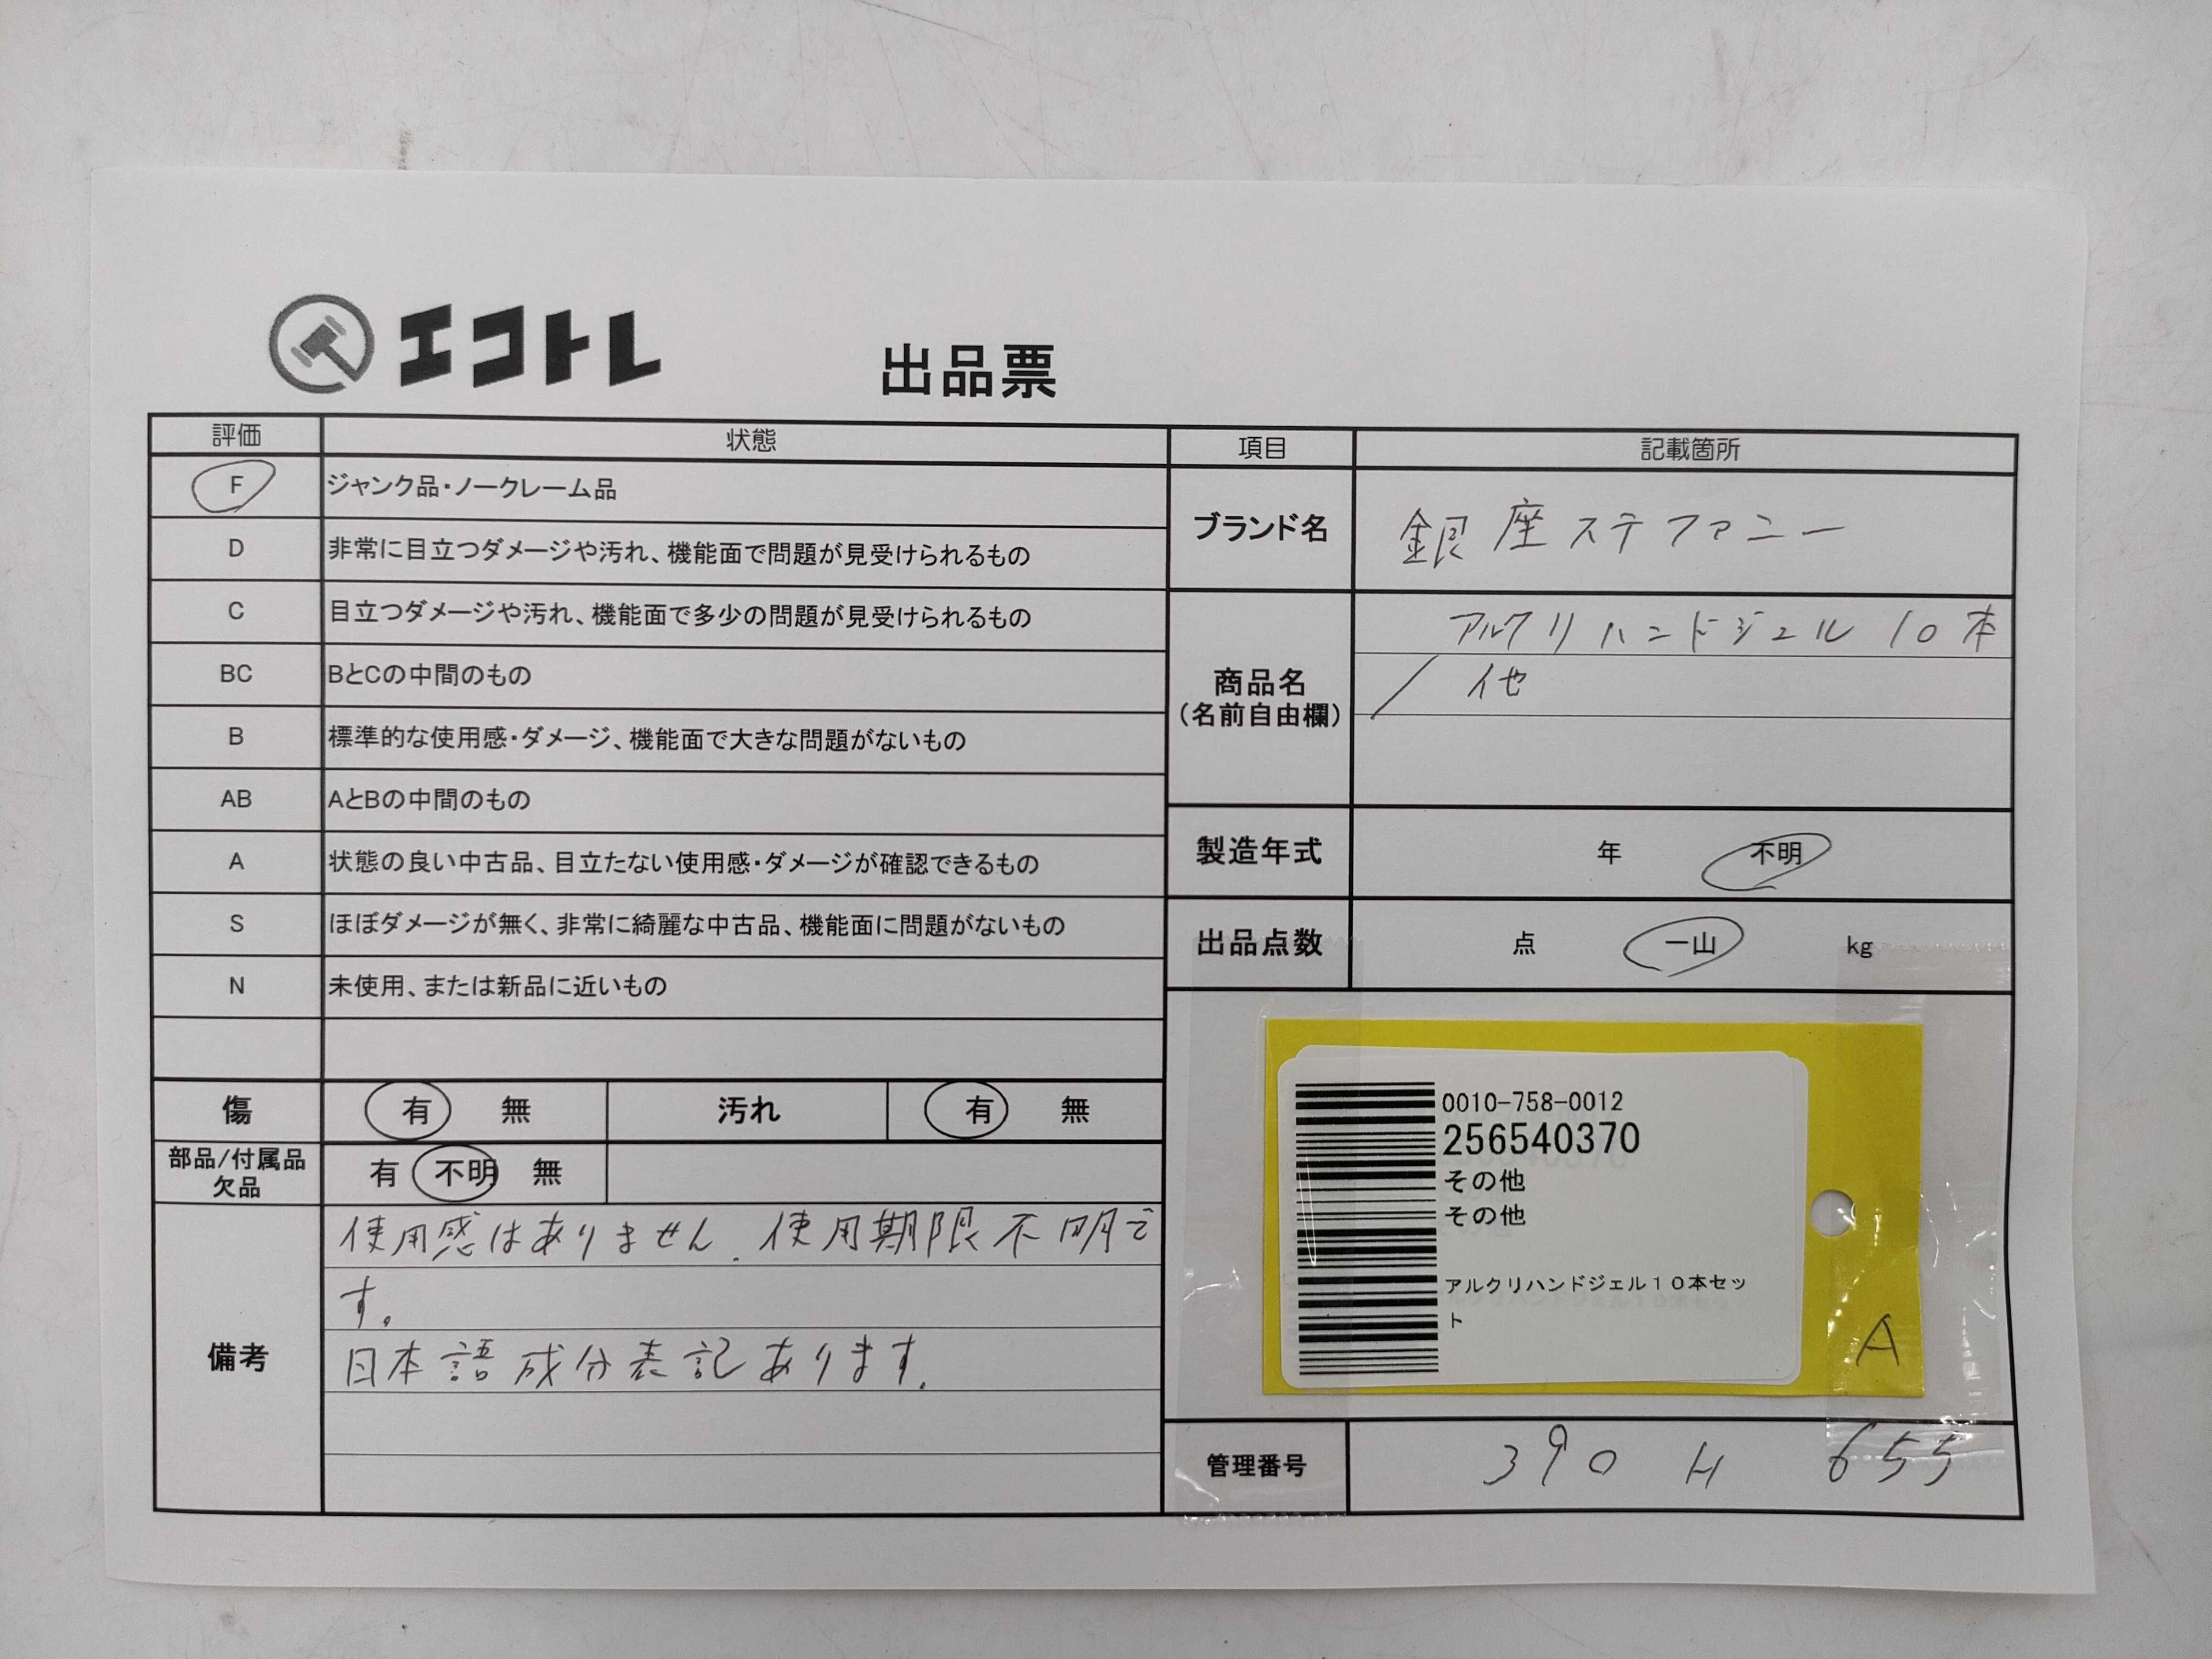 エコトレ
出品票
評価 状態
F ジャンク品・ノークレーム品
D 非常に目立つダメージや汚れ、機能面で問題が見受けられるもの
C 目立つダメージや汚れ、機能面で多少の問題が見受けられるもの
BC BとCの中間のもの
B 標準的な使用感・ダメージ、機能面で大きな問題がないもの
AB AとBの中間のもの
A 状態の良い中古品、目立たない使用感・ダメージが確認できるもの
S ほぼダメージが無く、非常に綺麗な中古品、機能面に問題がないもの
N 未使用、または新品に近いもの
傷 有 無 汚れ 有 無
部品/付属品
欠品
有 不明 無
備考
使用感はありません. 使用期限不明で
す。
日本語成分表記あります.
項目 記載箇所
ブランド名 銀座ステファニー
商品名
(名前自由欄)
アルクリハンドジェル 10本
/ 他
製造年式 年 不明
出品点数 点 一山 kg
0010-758-0012
256540370
その他
その他
アルクリハンドジェル10本セッ
ト
A
管理番号 390 H 655